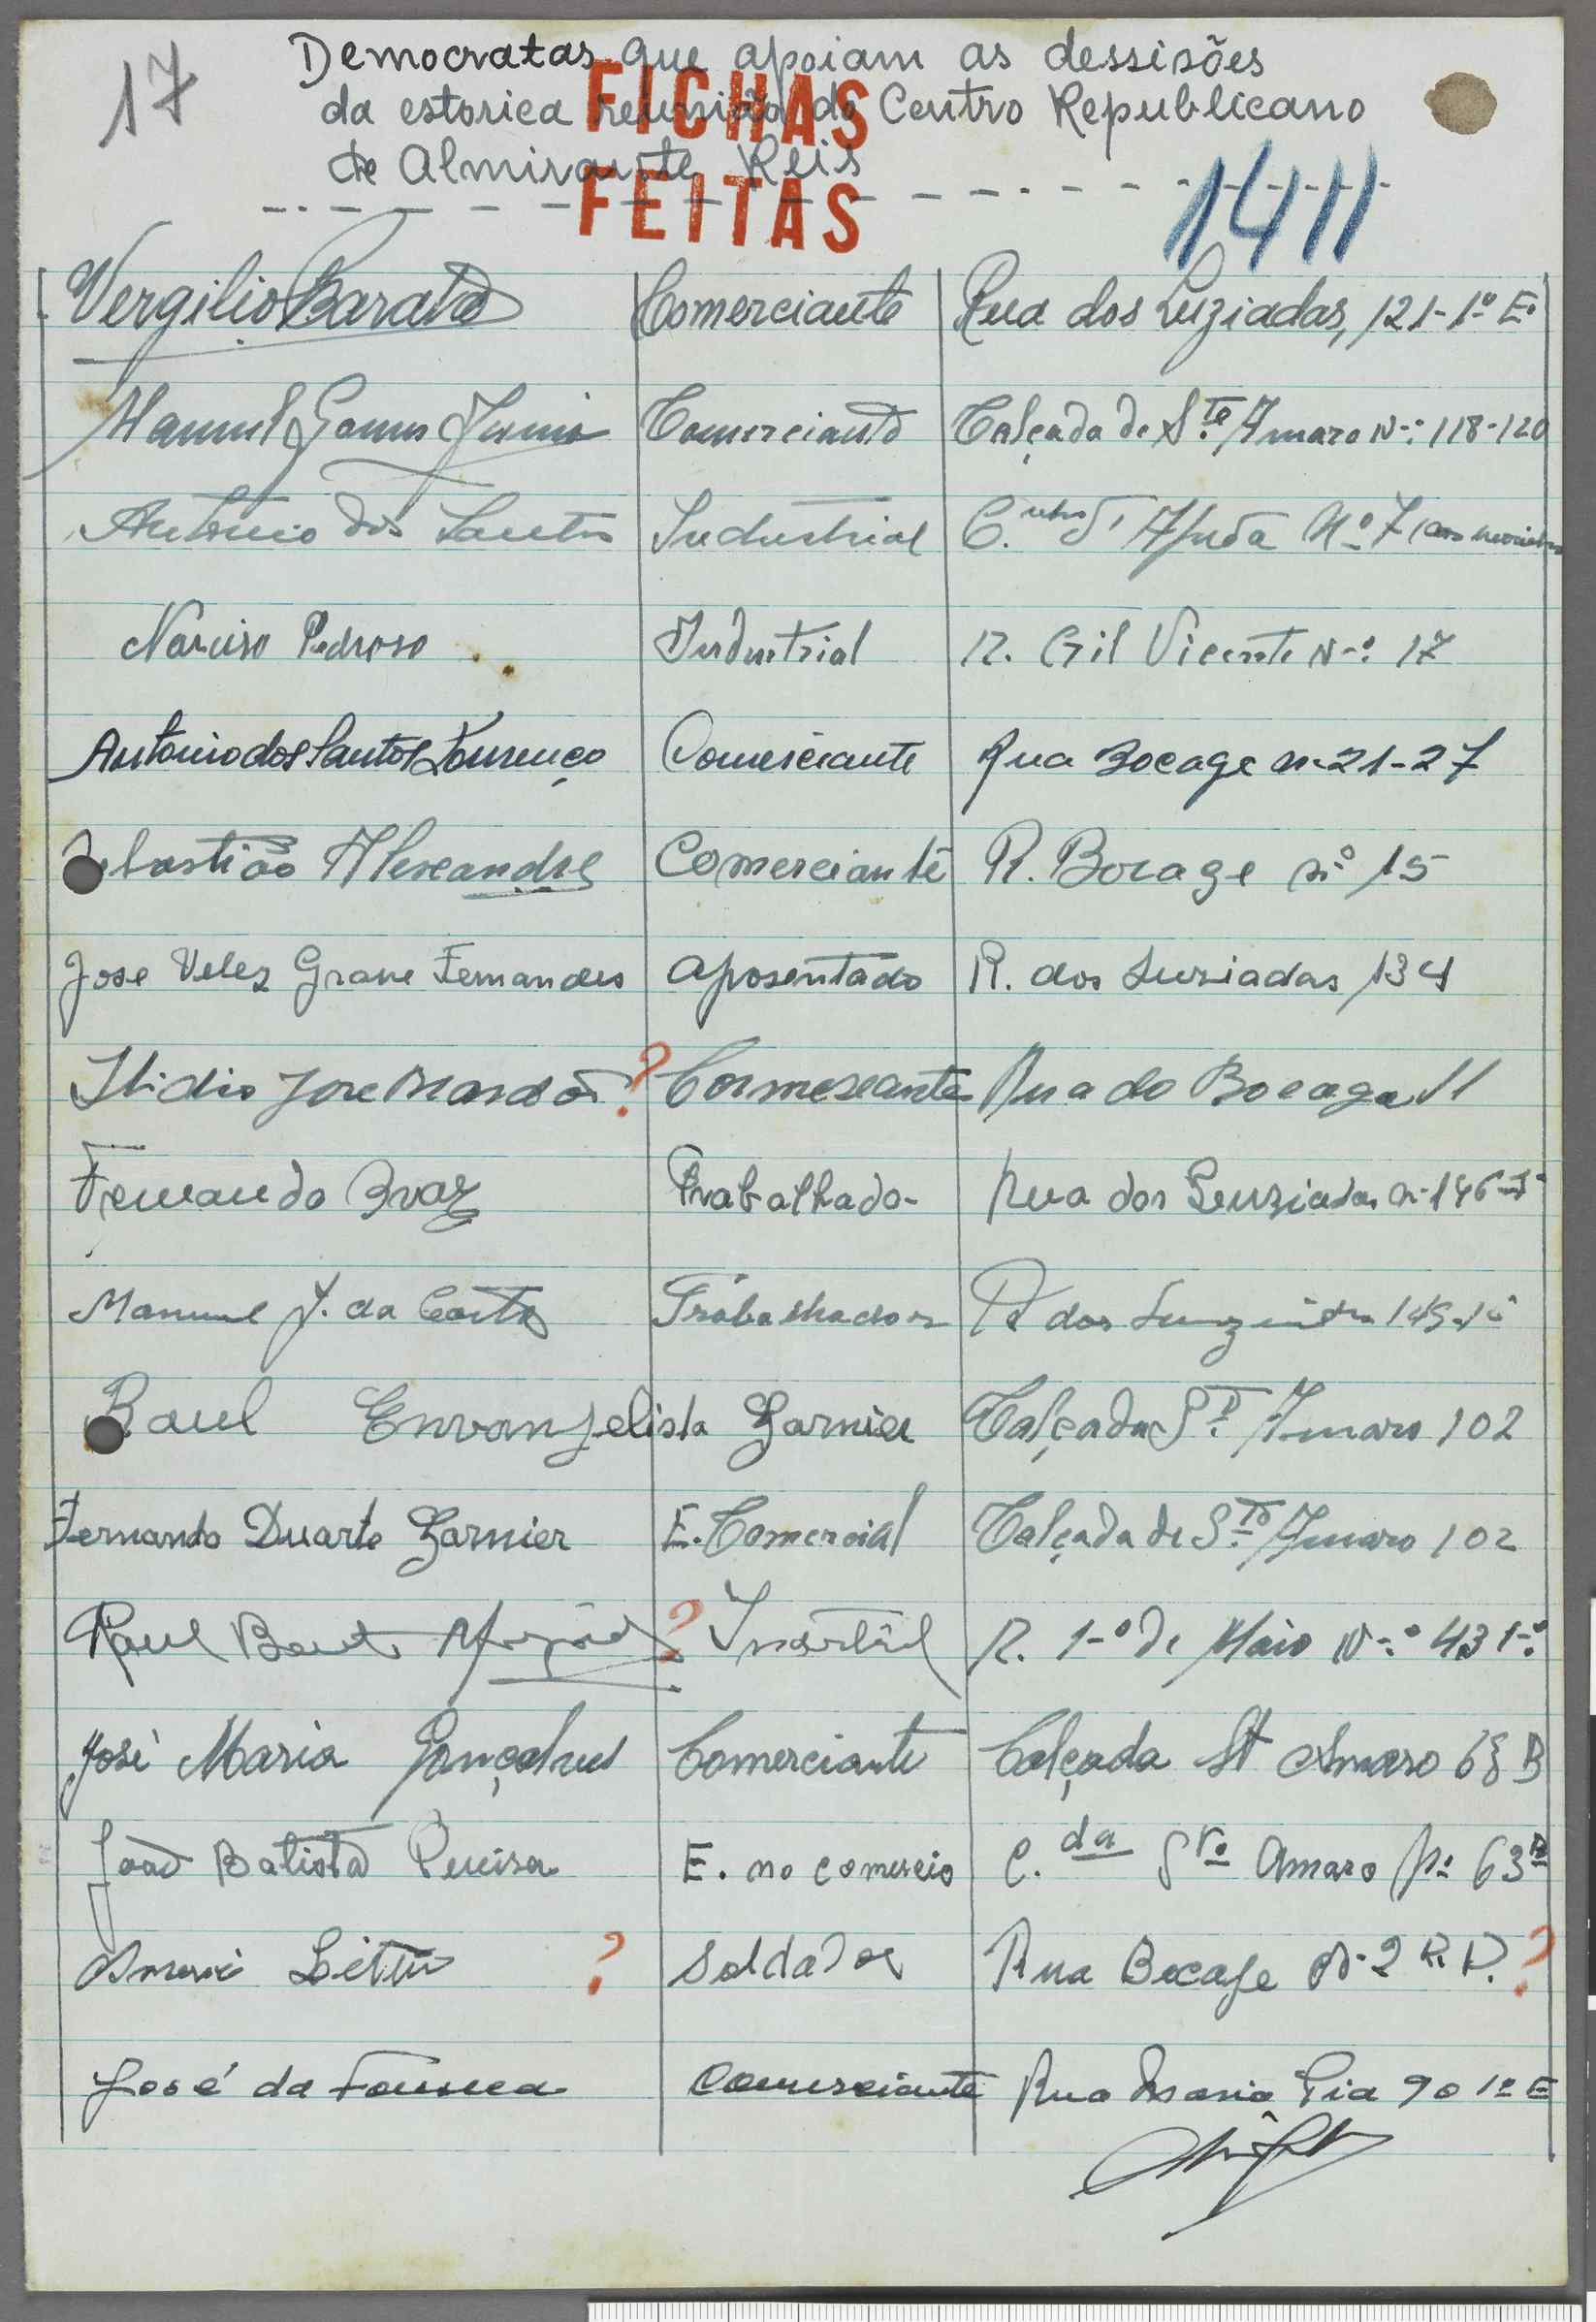 17
Democratas que apoiam as dessisões
da estorica reunião do Centro Republicano
de Almirante Reis
FICHAS
FEITAS
1411
Vergilio Barata Comerciante Rua dos Luziadas, 121-1º E.
Manuel Gomes Junior Comerciante Calçada de S.to Amaro Nº 118-120
Antonio dos Santos Industrial C. d'Ajuda Nº 7
Narciso Pedroso Industrial R. Gil Vicente Nº 17
Antonio dos Santos Lourenço Comerciante Rua Bocage n. 21-27
Sebastião Alexandre Comerciante R. Bocage nº 15
Jose Velez Grave Fernandes aposentado R. dos Luziadas 134
Ilidio Jose ? Commerciante Rua do Bocage 11
Fernando Braz Trabalhado- Rua dos Luziadas n. 146
Manuel J. da Costa Trabalhador R dos
Raul Envangelista Garnier Calçada S.to Amaro 102
Fernando Duarte Garnier E. Comercial Calçada de S.to Amaro 102
Raul ? R. 1º de Maio Nº 43 1º
José Maria Gonçalves Comerciante Calçada St Amaro 63 B
João Batista Pereira E. no comercio C.da Sto Amaro Nº 63 B
? Soldador Rua Bocage Nº 2 R. D. ?
José da Fonseca Comerciante Rua Maria Pia 90 1º E